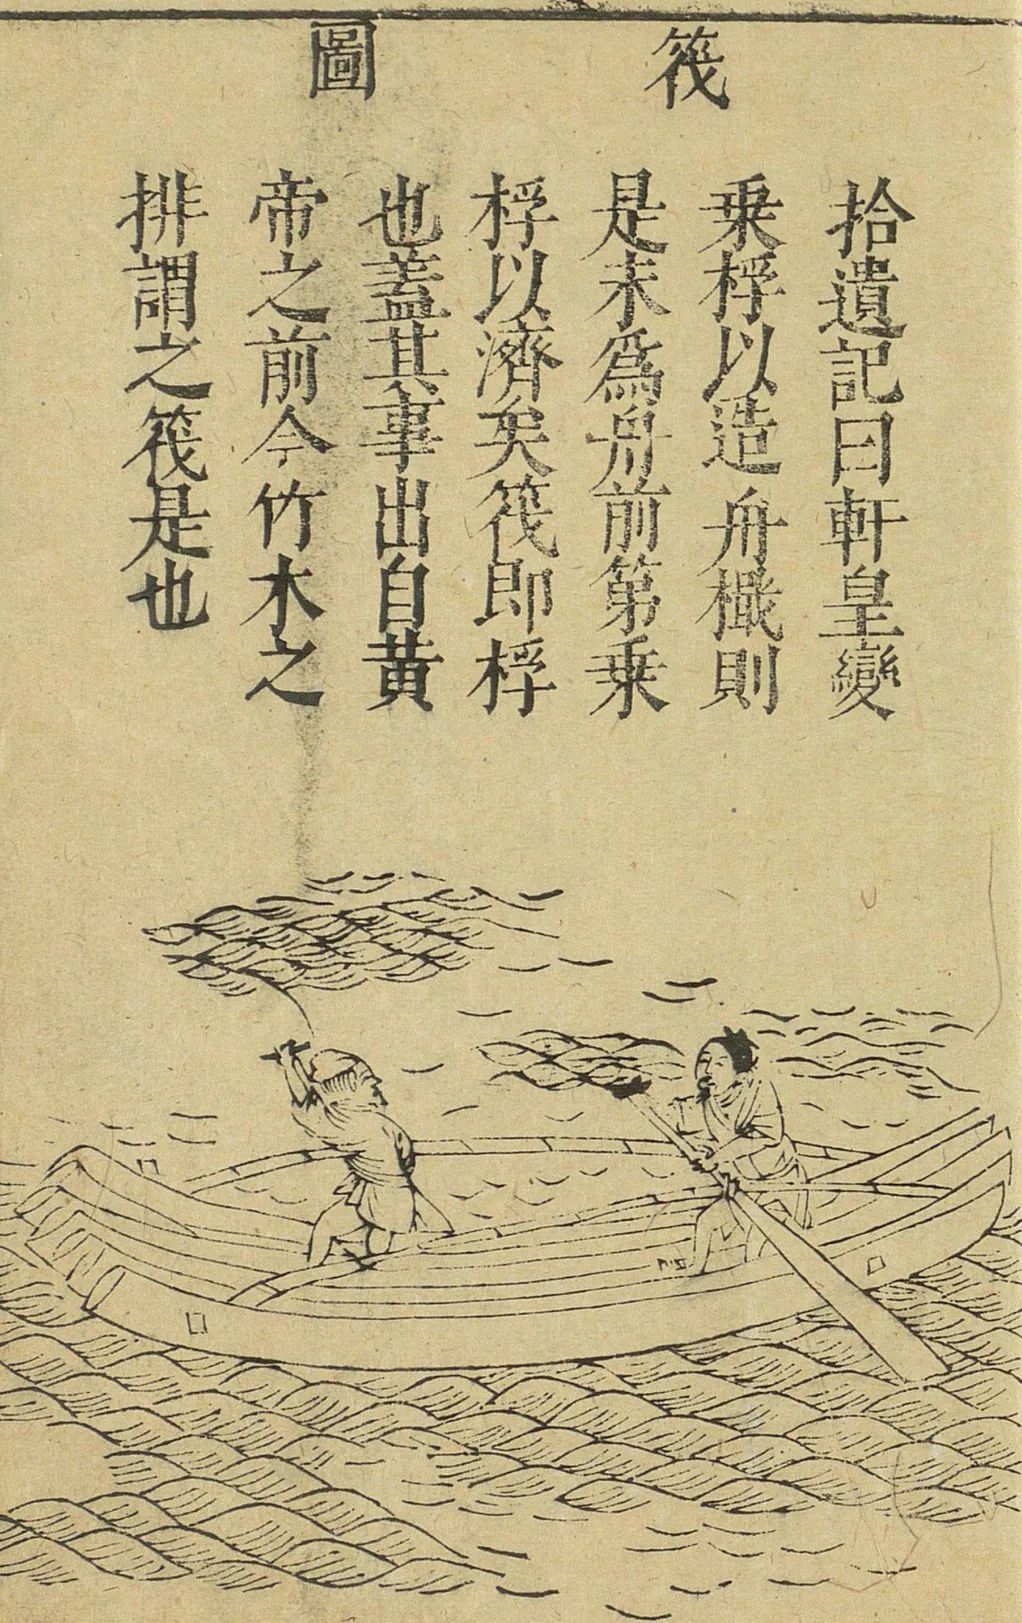 筏圖
拾遺記曰軒皇變
乗桴以造舟檝則
是未為舟前第乗
桴以濟矣筏即桴
也蓋其事出自黄
帝之前今竹木之
排謂之筏是也